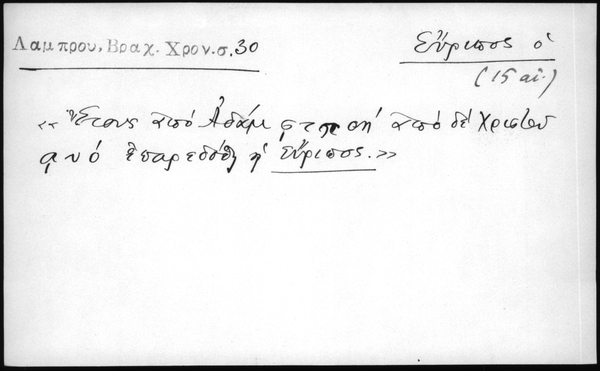 Λαμπρου, Βραχ. Χρον. σ. 30
Εὔριπος ὁ
(15 αἰ.)
«Ἔτους ἀπό Ἀδάμ ἀπό δέ Χριστοῦ
ᾳυό ἐπαρεδόθη ἡ Εὔριπος.»